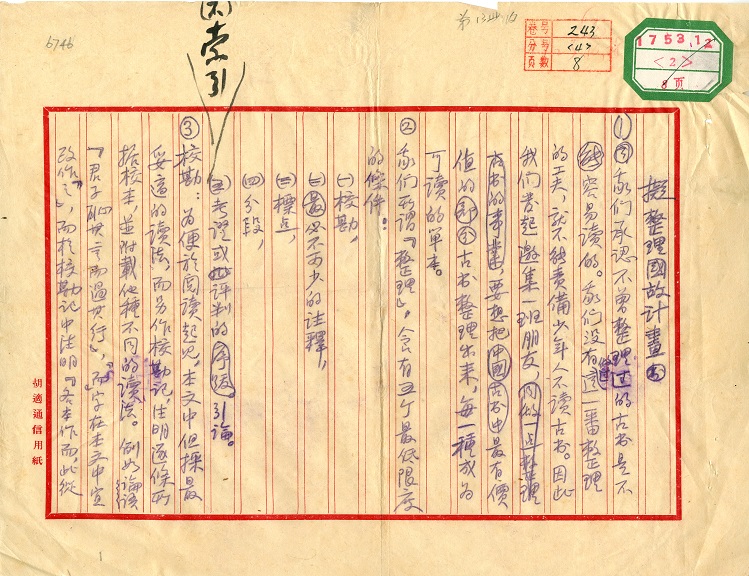 6746
索引
卷号 243
分号 <4>
頁數 8
1753.12
<2>
8页
擬整理國故計畫
① 我們承認不曾整理過的古書是不
容易讀的。我們沒有這一番整理
的工夫，就不能責備少年人不讀古書。因此
我們發起邀集一班朋友，同做一點整理
古書的事業，要想把中國古書中最有價
值的部分古書整理出來，每一種成為
可讀的單本。
② 我們所謂「整理」，含有五個最低限度
的條件：
(一) 校勘，
必不可少的註釋，
標点，
(四) 分段，
考證或批評判的序跋。引論。
③ 校勘：為便於閱讀起見，本文中但採最
妥適的讀法，而另作校勘記，注明逐條所
據校本，並附載他種不同的讀法。例如論語
「君子恥其言而過其行」，而字在本文中宜
改作「之」，而於校勘記中注明「各本作而此從
胡適通信用紙